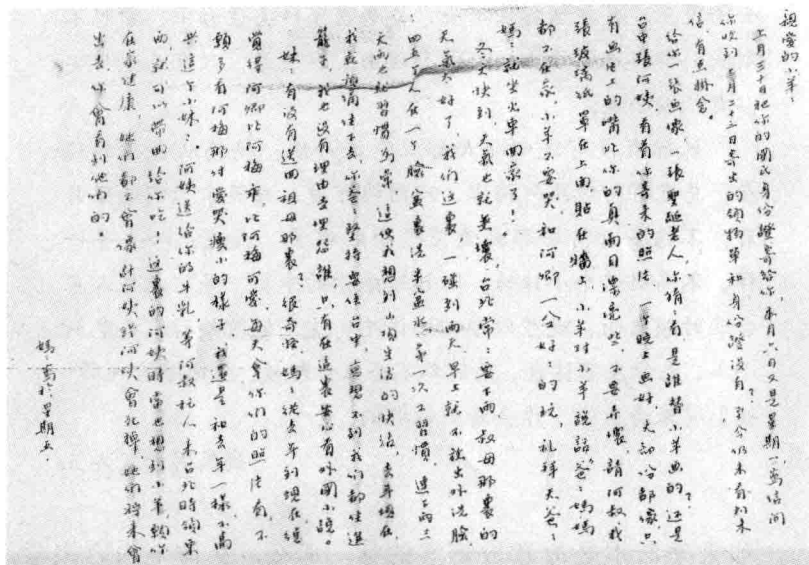 親愛的小羊、
上月三十日把你的國民身份證寄給你、本月六日又是星期一寫信問
你收到二月十三日寄出的領物單和身份證沒有？至今仍未看到來
信、有点掛念。
給你一張畫像、張聖誕老人、你猜、看是誰替小羊畫的？還是
台中張阿姨看着你寄來的照片、一晚上畫好、大部份都像、只
有畫上的嘴比你的真面目漂亮些、要弄壞、請阿叔找
張玻璃紙罩在上面貼在牆上、小羊对小羊說話、爸、媽媽
都不在家、小羊不要哭、和阿卿一介子好的玩、礼拜天爸、
媽、就坐火車回家了！
冬天快到、天氣也就差壞、台北常、要下雨、叔母那裏的
天氣太好了、我們这裏一碰到雨天早上就不能出外洗臉
四五十人在一个臉盆裏洗
天雨也就習慣為常、這使我想到山洞生活的快活、去年現在
我在頂滴住下去、你爸、堅持要住台中、竟想不到我們都住進
籠子、我也沒有理由去埋怨誰、只有在這裏安心看外國小說。
妹、有沒有送回祖母那裏？很奇怪媽、從去年到現在總
覺得阿卿比阿梅乖、比阿梅可愛、每天拿你們的照片看、不
願多看阿梅那付愛哭、矮小的樣子、我還是和去年一樣不高
興這个小妹、阿姨送給你的牛乳、等阿叔托人来台北時領東
西、就可以帶回給你吃！这裏的阿姨時常也想到小羊、願你
在家健康、她們都不會像許阿姨、許阿姨會死掉、她們將来會
出去、你會看到他們的。
媽、寫於星期五